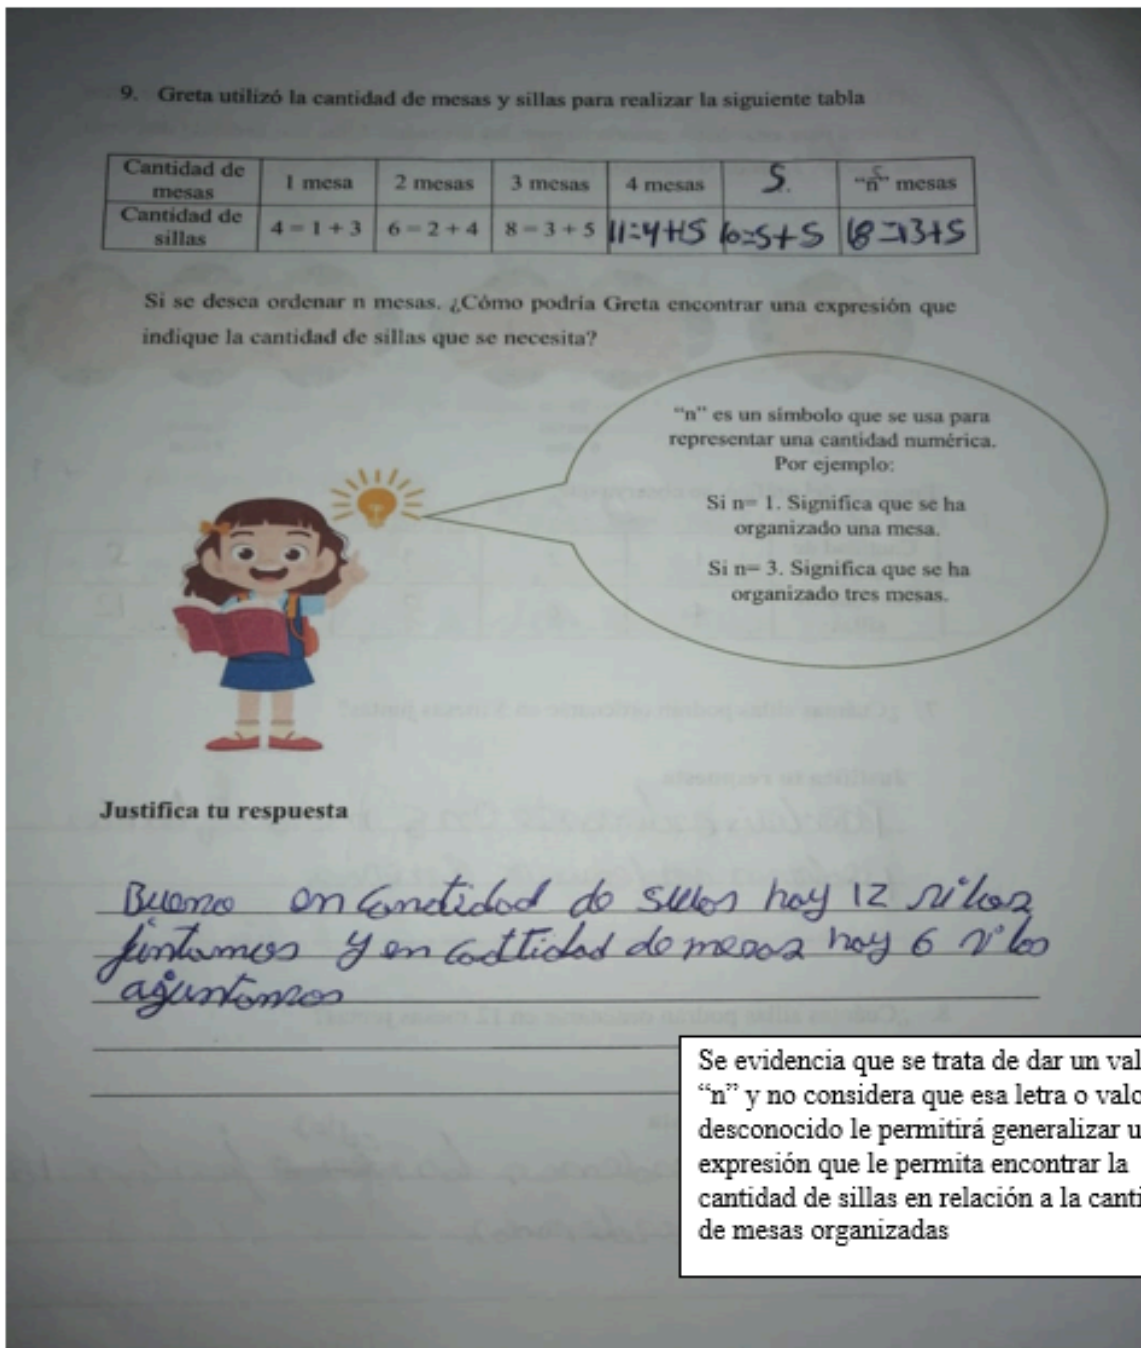 9. Greta utilizó la cantidad de mesas y sillas para realizar la siguiente tabla
Cantidad de mesas 1 mesa 2 mesas 3 mesas 4 mesas 5. "n" mesas
Cantidad de sillas 4 = 1 + 3 6 = 2 + 4 8 = 3 + 5 11=4+5 10=5+5 18=13+5
Si se desea ordenar n mesas. ¿Cómo podría Greta encontrar una expresión que
indique la cantidad de sillas que se necesita?
"n" es un símbolo que se usa para
representar una cantidad numérica.
Por ejemplo:
Si n= 1. Significa que se ha
organizado una mesa.
Si n= 3. Significa que se ha
organizado tres mesas.
Justifica tu respuesta
Bueno en cantidad de hay 12
y en de mesas hay 6
Se evidencia que se trata de dar un val
"n" y no considera que esa letra o valo
desconocido le permitirá generalizar u
expresión que le permita encontrar la
cantidad de sillas en relación a la canti
de mesas organizadas